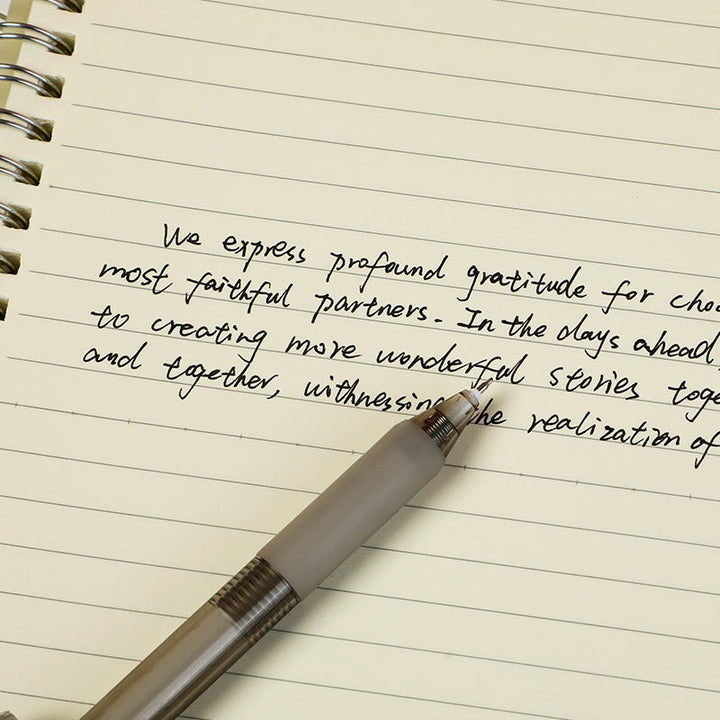 We express profound gratitude for
most faithful partners. In the days ahead,
to creating more wonderful stories
and together, withnessing the realization of